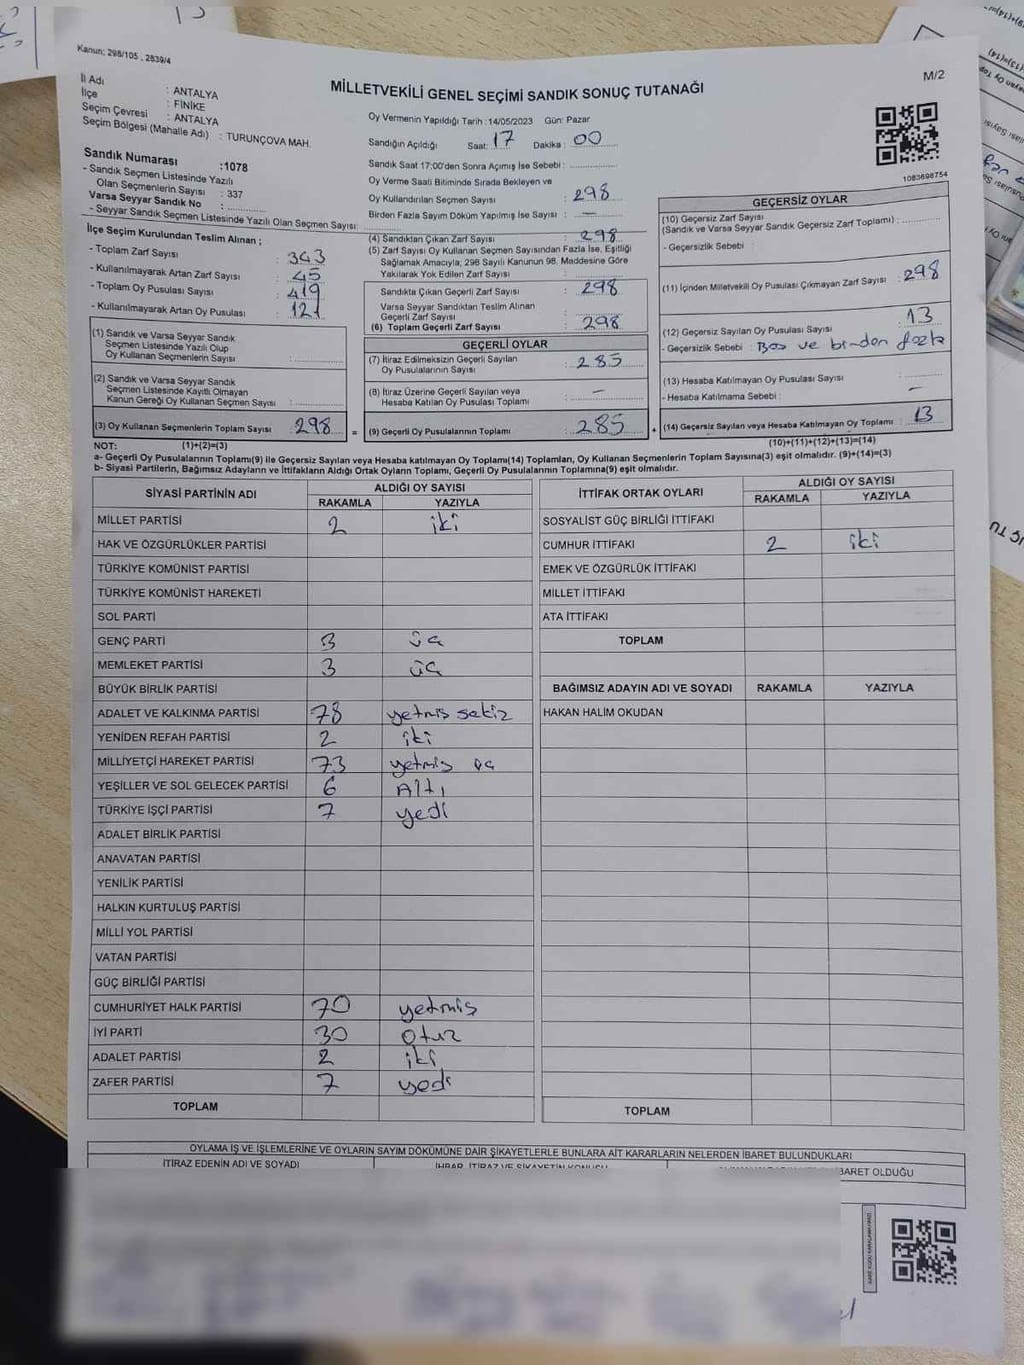 Kanun; 298/105 , 2839/4
MİLLETVEKİLİ GENEL SEÇİMİ SANDIK SONUÇ TUTANAĞI
M/2
İl Adı : ANTALYA
İlçe : FİNİKE
Seçim Çevresi : ANTALYA
Seçim Bölgesi (Mahalle Adı) : TURUNÇOVA MAH.
Sandık Numarası :1078
- Sandık Seçmen Listesinde Yazılı
Olan Seçmenlerin Sayısı : 337
Varsa Seyyar Sandık No :
- Seyyar Sandık Seçmen Listesinde Yazılı Olan Seçmen Sayısı :
Oy Vermenin Yapıldığı Tarih :14/05/2023 Gün: Pazar
Sandığın Açıldığı Saat: 17 Dakika : 00
Sandık Saat 17:00'den Sonra Açımış İse Sebebi :
Oy Verme Saati Bitiminde Sırada Bekleyen ve
Oy Kullandırılan Seçmen Sayısı : 298
Birden Fazla Sayım Döküm Yapılmış İse Sayısı : —
1083698754
İlçe Seçim Kurulundan Teslim Alınan ;
- Toplam Zarf Sayısı : 343
- Kullanılmayarak Artan Zarf Sayısı : 45
- Toplam Oy Pusulası Sayısı : 419
- Kullanılmayarak Artan Oy Pusulası : 121
(1) Sandık ve Varsa Seyyar Sandık
Seçmen Listesinde Yazılı Olup
Oy Kullanan Seçmenlerin Sayısı :
(2) Sandık ve Varsa Seyyar Sandık
Seçmen Listesinde Kayıtlı Olmayan
Kanun Gereği Oy Kullanan Seçmen Sayısı :
(3) Oy Kullanan Seçmenlerin Toplam Sayısı : 298 =
(4) Sandıktan Çıkan Zarf Sayısı : 298
(5) Zarf Sayısı Oy Kullanan Seçmen Sayısından Fazla İse, Eşitliği
Sağlamak Amacıyla, 298 Sayılı Kanunun 98. Maddesine Göre
Yakılarak Yok Edilen Zarf Sayısı :
Sandıkta Çıkan Geçerli Zarf Sayısı : 298
Varsa Seyyar Sandıktan Teslim Alınan
Geçerli Zarf Sayısı :
(6) Toplam Geçerli Zarf Sayısı : 298
GEÇERLİ OYLAR
(7) İtiraz Edilmeksizin Geçerli Sayılan
Oy Pusulalarının Sayısı : 285
(8) İtiraz Üzerine Geçerli Sayılan veya
Hesaba Katılan Oy Pusulası Toplamı : —
(9) Geçerli Oy Pusulalarının Toplamı : 285 +
GEÇERSİZ OYLAR
(10) Geçersiz Zarf Sayısı
(Sandık ve Varsa Seyyar Sandık Geçersiz Zarf Toplamı) :
- Geçersizlik Sebebi :
(11) İçinden Milletvekili Oy Pusulası Çıkmayan Zarf Sayısı : 298
(12) Geçersiz Sayılan Oy Pusulası Sayısı : 13
- Geçersizlik Sebebi : Boş ve birden fazla
(13) Hesaba Katılmayan Oy Pusulası Sayısı :
- Hesaba Katılmama Sebebi : —
(14) Geçersiz Sayılan veya Hesaba Katılmayan Oy Toplamı : 13
NOT: (1)+(2)=(3)
(10)+(11)+(12)+(13)=(14)
a- Geçerli Oy Pusulalarının Toplamı(9) ile Geçersiz Sayılan veya Hesaba katılmayan Oy Toplamı(14) Toplamları, Oy Kullanan Seçmenlerin Toplam Sayısına(3) eşit olmalıdır. (9)+(14)=(3)
b- Siyasi Partilerin, Bağımsız Adayların ve İttifakların Aldığı Ortak Oyların Toplamı, Geçerli Oy Pusulalarının Toplamına(9) eşit olmalıdır.
SİYASİ PARTİNİN ADI ALDIĞI OY SAYISI
RAKAMLA YAZIYLA
MİLLET PARTİSİ 2 iki
HAK VE ÖZGÜRLÜKLER PARTİSİ
TÜRKİYE KOMÜNİST PARTİSİ
TÜRKİYE KOMÜNİST HAREKETİ
SOL PARTİ
GENÇ PARTİ 3 üç
MEMLEKET PARTİSİ 3 üç
BÜYÜK BİRLİK PARTİSİ
ADALET VE KALKINMA PARTİSİ 78 yetmiş sekiz
YENİDEN REFAH PARTİSİ 2 iki
MİLLİYETÇİ HAREKET PARTİSİ 73 yetmiş üç
YEŞİLLER VE SOL GELECEK PARTİSİ 6 Altı
TÜRKİYE İŞÇİ PARTİSİ 7 yedi
ADALET BİRLİK PARTİSİ
ANAVATAN PARTİSİ
YENİLİK PARTİSİ
HALKIN KURTULUŞ PARTİSİ
MİLLİ YOL PARTİSİ
VATAN PARTİSİ
GÜÇ BİRLİĞİ PARTİSİ
CUMHURİYET HALK PARTİSİ 70 yetmiş
İYİ PARTİ 30 otuz
ADALET PARTİSİ 2 iki
ZAFER PARTİSİ 7 yedi
TOPLAM
İTTİFAK ORTAK OYLARI ALDIĞI OY SAYISI
RAKAMLA YAZIYLA
SOSYALİST GÜÇ BİRLİĞİ İTTİFAKI
CUMHUR İTTİFAKI 2 iki
EMEK VE ÖZGÜRLÜK İTTİFAKI
MİLLET İTTİFAKI
ATA İTTİFAKI
TOPLAM
BAĞIMSIZ ADAYIN ADI VE SOYADI RAKAMLA YAZIYLA
HAKAN HALİM OKUDAN
TOPLAM
OYLAMA İŞ VE İŞLEMLERİNE VE OYLARIN SAYIM DÖKÜMÜNE DAİR ŞİKAYETLERLE BUNLARA AİT KARARLARIN NELERDEN İBARET BULUNDUKLARI
İTİRAZ EDENİN ADI VE SOYADI
İHBAR, İTİRAZ VE ŞİKAYETİN KONUSU
BARET OLDUĞU